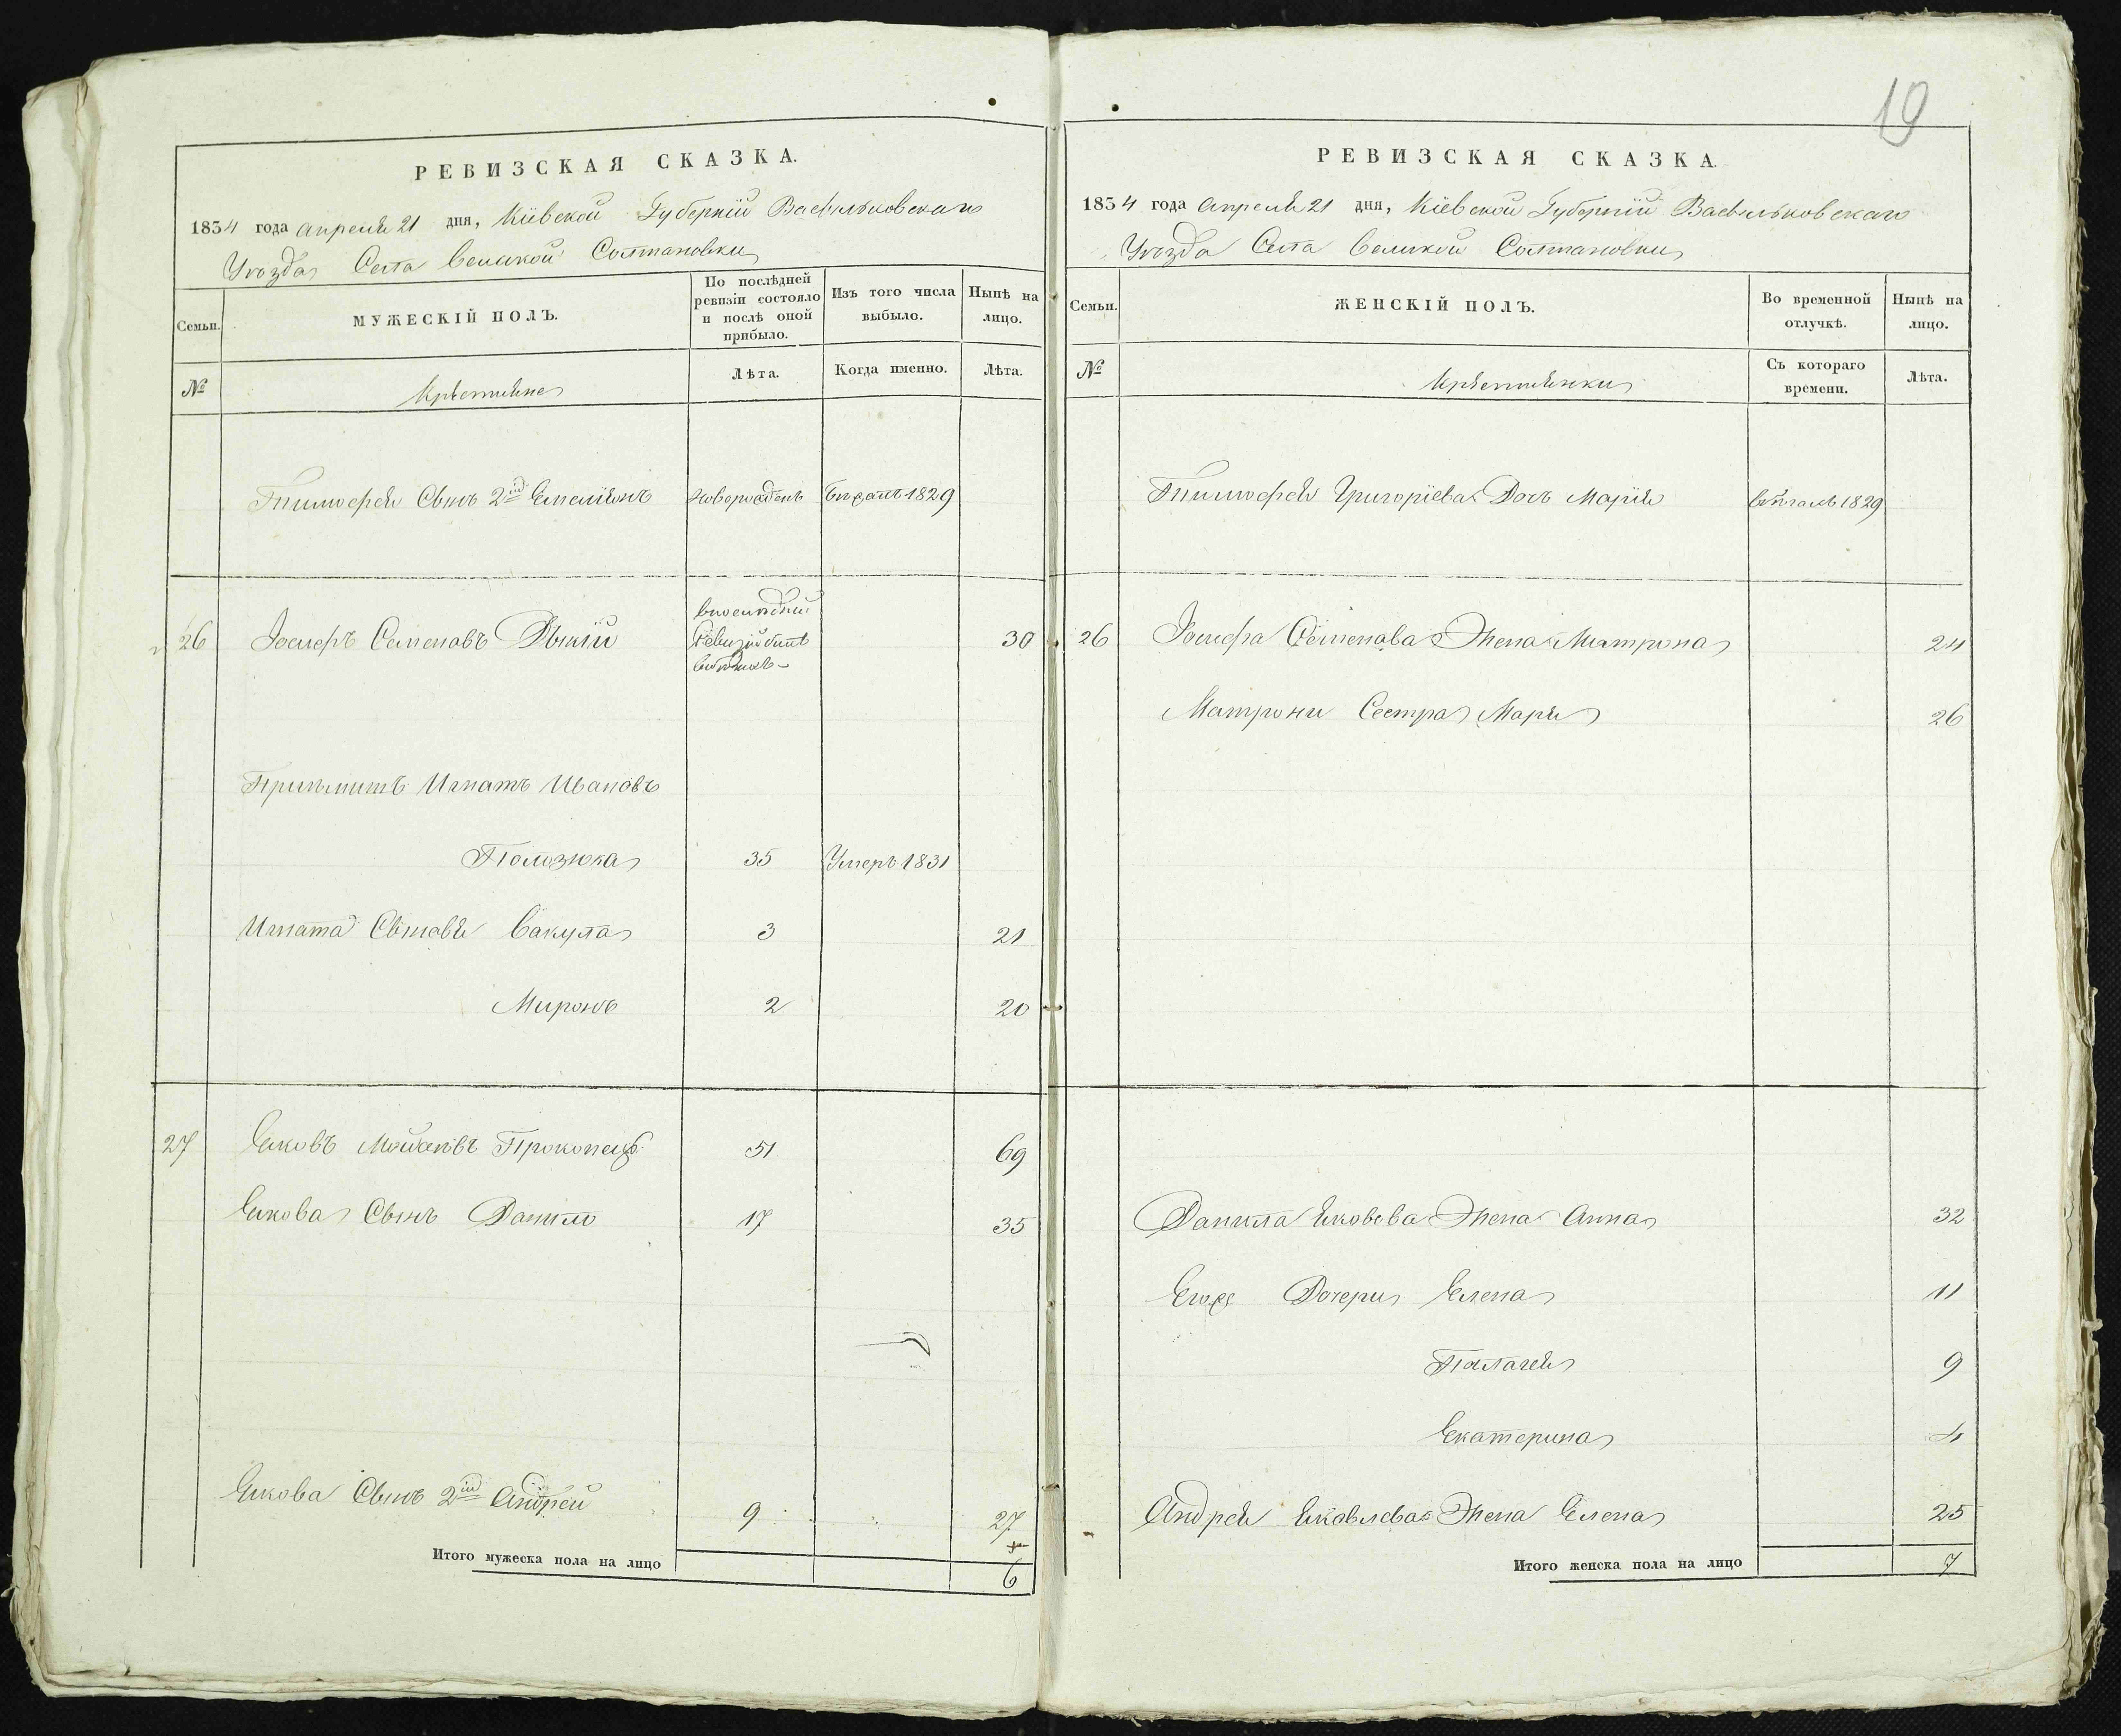 19
РЕВИЗСКАЯ СКАЗКА.
1834 года апреля 21 дня, Кіевской Губерніи Васильковскаго
Уѣзда Села Великой Солтановки
Семьи.
МУЖЕСКІЙ ПОЛЪ.
По послѣдней ревизіи состояло и послѣ оной прибыло.
Изъ того числа выбыло.
Нынѣ на лицо.
№
Крѣстяне
Лѣта.
Когда именно.
Лѣта.
Тимофея Сынъ 2й Емеліянъ новорожденъ Бѣжалъ 1829
26 Іосифъ Семеновъ Дыкій 30
впоследней
Ревизіи былъ
Игнатъ Ивановъ
35 Умеръ 1831
Игната Сыновья Вакула 3 21
Миронъ 2 20
27 Яковъ Прокопецъ 51 69
Якова Сынъ Данило 17 35
Якова Сынъ 2й Андрей 9 27
Итого мужеска пола на лицо 6
РЕВИЗСКАЯ СКАЗКА.
1834 года апреля 21 дня, Кіевской Губерніи Васильковскаго
Уѣзда Села Великой Солтановки
Семьи.
ЖЕНСКІЙ ПОЛЪ.
Во временной отлучкѣ.
Нынѣ на лицо.
№
Крѣстянки
Съ котораго времени.
Лѣта.
Тимофея Григоріева Дочъ Марія 1829
26 Іосифа Семенова Жена Матрона 24
Матрони Сестра Марія 26
Данила Яковева Жена Анна 32
Егоже Дочери Елена 11
Палагея 9
Екатерина 4
Андрея Яковлева Жена Елена 25
Итого женска пола на лицо 7